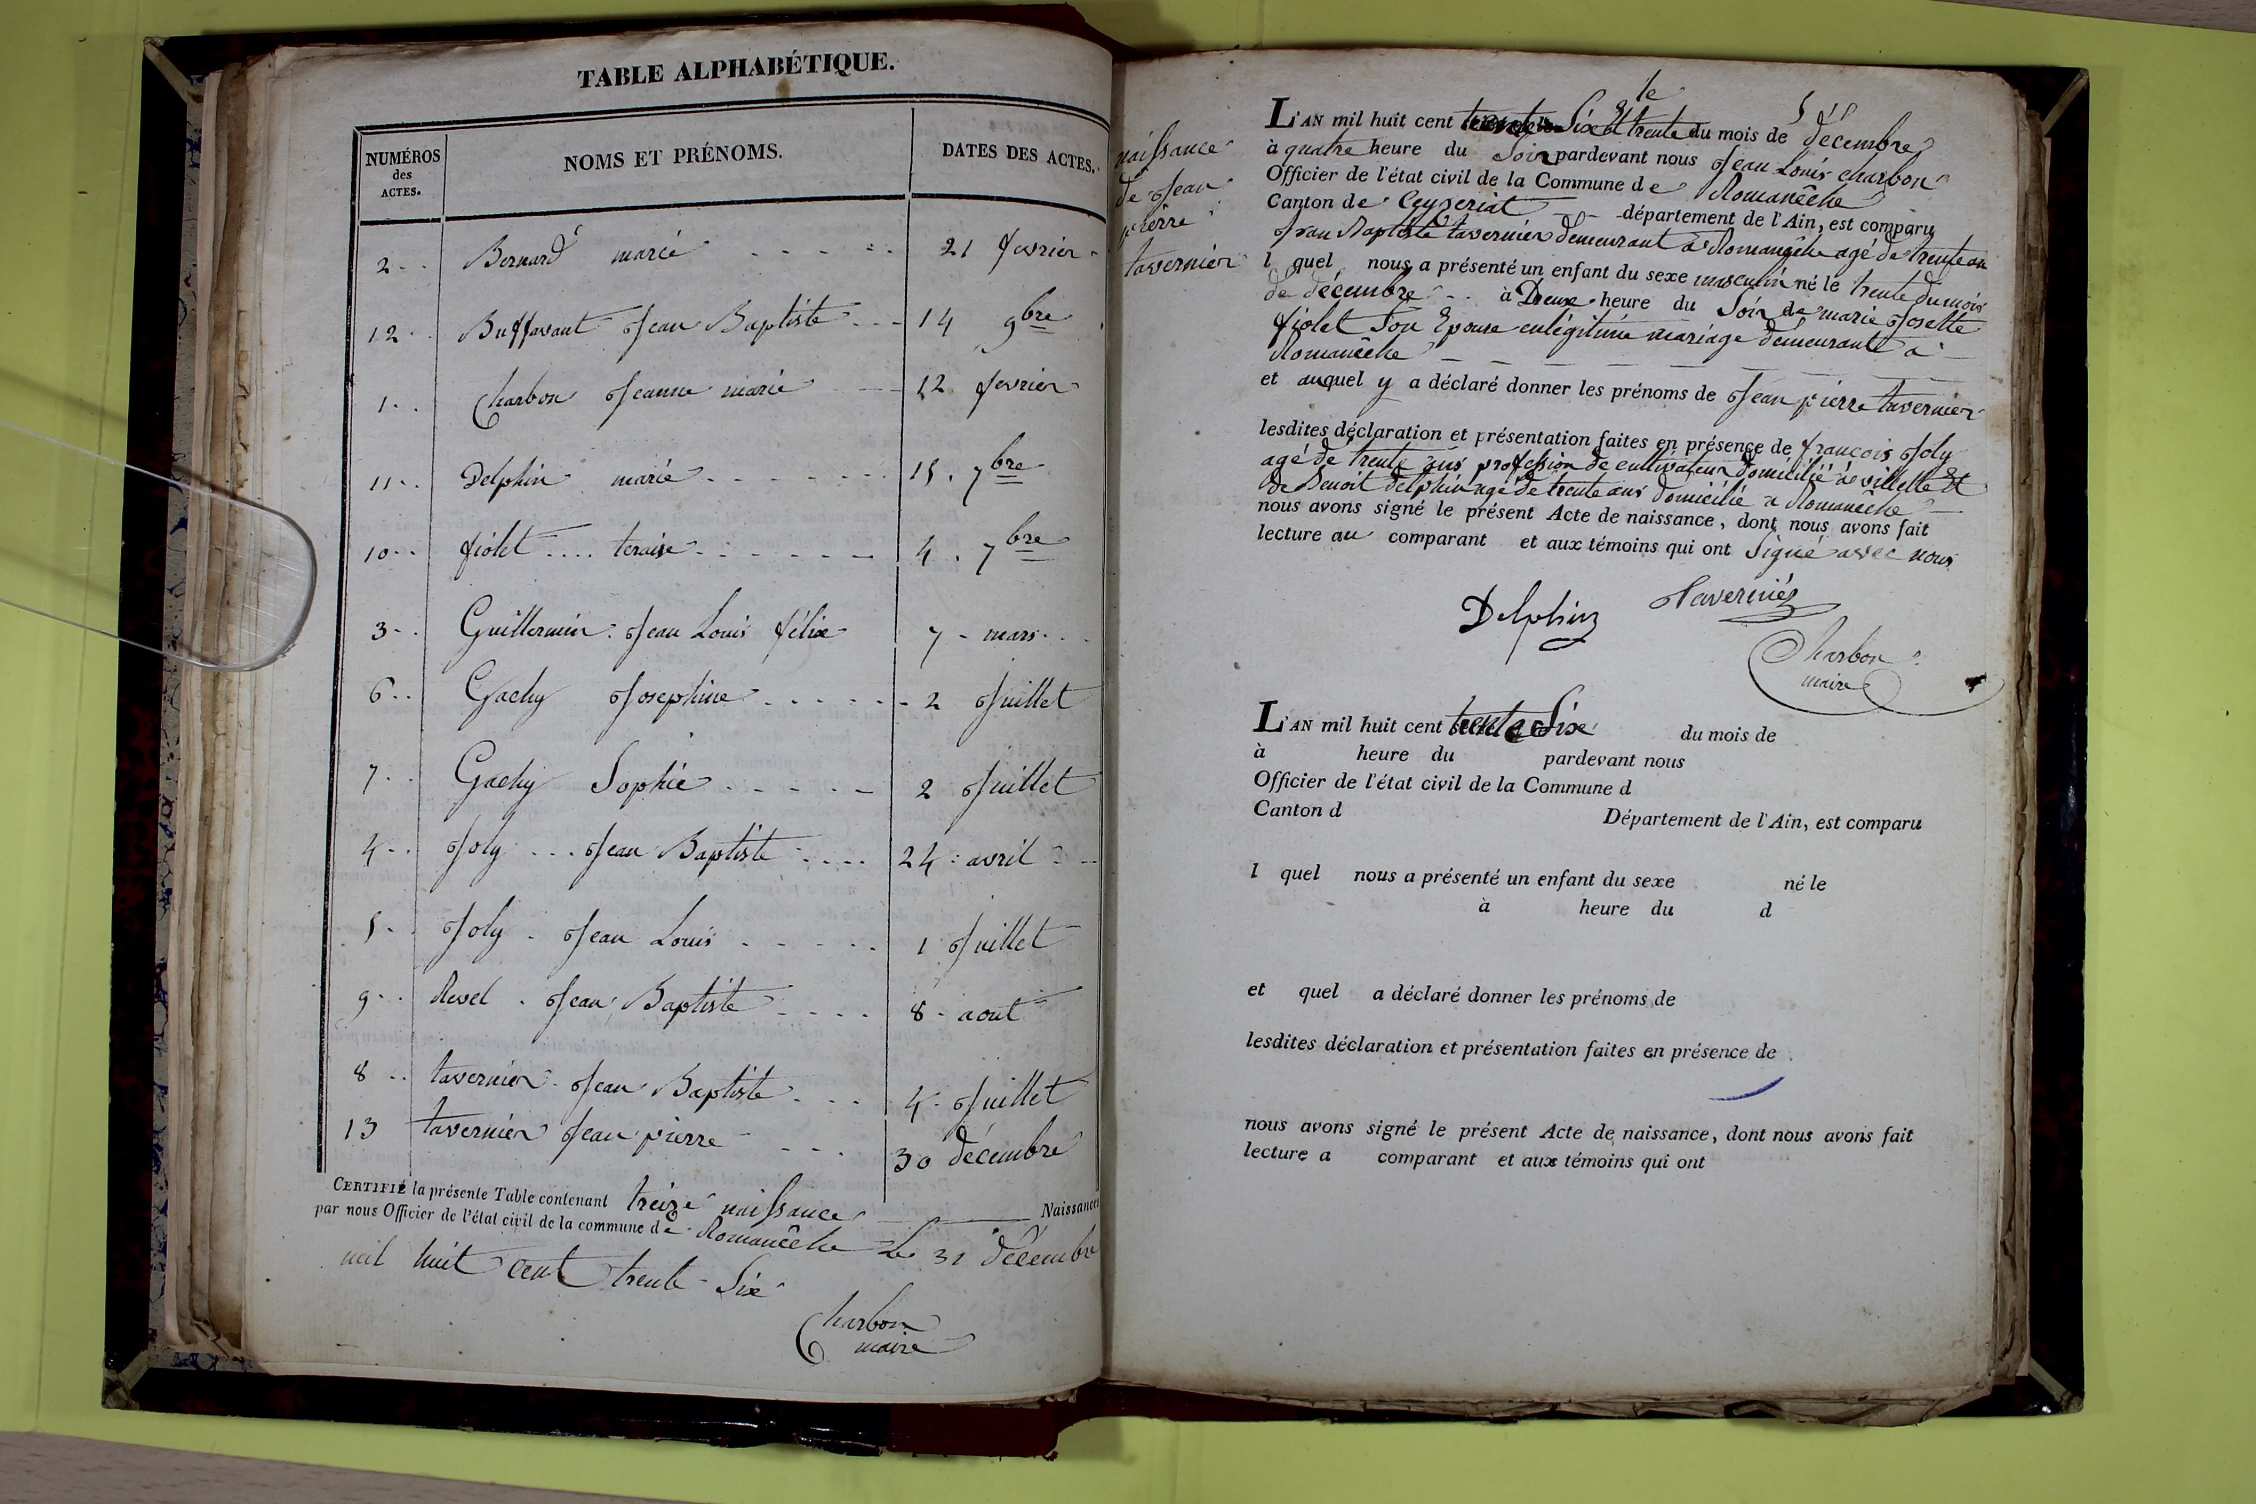 TABLE ALPHABÉTIQUE.
NUMÉROS des ACTES. NOMS ET PRÉNOMS. DATES DES ACTES.
2 Bernard marie 21 fevrier
12 Buffavant Jean Baptiste 14 9bre
1 Charbon Jeanne marie 12 fevrier
11 Delphin marie 15 7bre
10 fiolet teraise 4 7bre
3 Guillermin Jean Louis félix 7 mars
6 Gachy Josephine 2 Juillet
7 Gachy Sophie 2 Juillet
4 Joly Jean Baptiste 24 avril
5 Joly Jean Louis 1 Juillet
9 Revel Jean Baptiste 8 aout
8 tavernier Jean Baptiste 4 Juillet
13 tavernier Jean pierre 30 décembre
CERTIFIÉ la présente Table contenant treize naissance Naissances
par nous Officier de l'état civil de la commune de Romanêche Le 31 décembre
mil huit cent trente Six
Charbon
maire
naissance
de Jean
pierre
tavernier
le
L'AN mil huit cent trente Six Et trente du mois de décembre
à quatre heure du Soir pardevant nous Jean Louis charbon
Officier de l'état civil de la Commune de Romanêche
Canton de Ceyzeriat département de l'Ain, est comparu
Jean Baptiste tavernier demeurant à Romanêche agé de trente an
l quel nous a présenté un enfant du sexe masculin né le trente du mois
de décembre à Deux heure du Soir de marie Josette
fiolet Son Epouse en légitime mariage démeurante à
Romanêche
et auquel y a déclaré donner les prénoms de Jean pierre tavernier
lesdites déclaration et présentation faites en présence de françois Joly
agé de trente ans profession de cultivateur domicilié à villette Et
de Benoit delphin agé de trente ans domicilié a Romanêche
nous avons signé le présent Acte de naissance, dont nous avons fait
lecture au comparant et aux témoins qui ont Signé avec nous
Delphin Taverniés
Charbon
maire
L'AN mil huit cent trente Six du mois de
à heure du pardevant nous
Officier de l'état civil de la Commune d
Canton d Département de l'Ain, est comparu
l quel nous a présenté un enfant du sexe né le
à heure du d
et quel a déclaré donner les prénoms de
lesdites déclaration et présentation faites en présence de
nous avons signé le présent Acte de naissance, dont nous avons fait
lecture a comparant et aux témoins qui ont